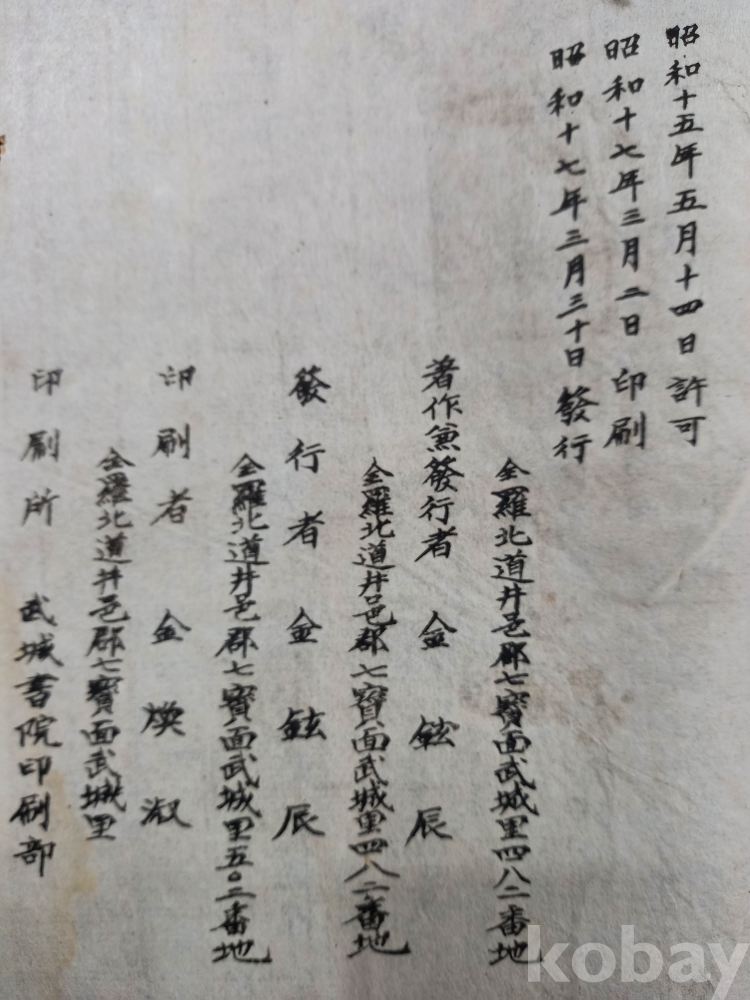 昭和十五年五月十四日 許可
昭和十七年三月二日 印刷
昭和十七年三月三十日 發行
全羅北道井邑郡七寶面武城里四八二番地
著作兼發行者 金鉉辰
全羅北道井邑郡七寶面武城里四八二番地
發行者 金鉉辰
全羅北道井邑郡七寶面武城里五〇二番地
印刷者 金煥淑
全羅北道井邑郡七寶面武城里
印刷所 武城書院印刷部
kobay